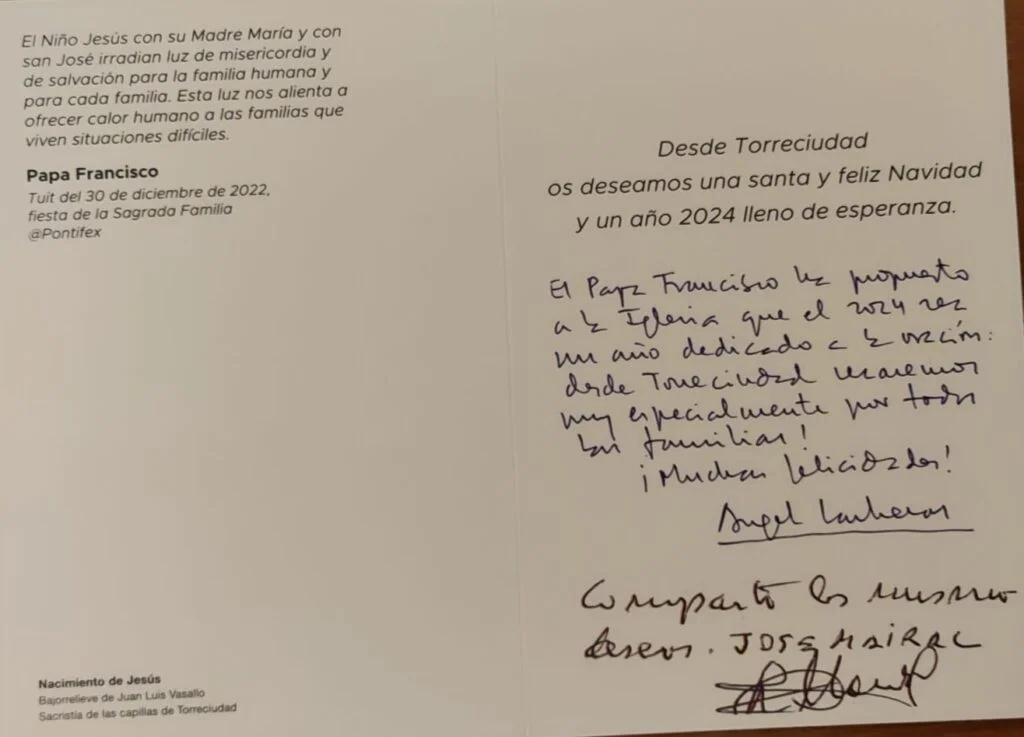 El Niño Jesús con su Madre María y con
san José irradian luz de misericordia y
de salvación para la familia humana y
para cada familia. Esta luz nos alienta a
ofrecer calor humano a las familias que
viven situaciones difíciles.
Papa Francisco
Tuit del 30 de diciembre de 2022,
fiesta de la Sagrada Familia
@Pontifex
Nacimiento de Jesús
Bajorrelieve de Juan Luis Vasallo
Sacristía de las capillas de Torreciudad
Desde Torreciudad
os deseamos una santa y feliz Navidad
y un año 2024 lleno de esperanza.
El Papa Francisco ha propuesto
a la Iglesia que el 2024 sea
un año dedicado a la oración:
desde Torreciudad rezaremos
muy especialmente por todas
las familias!
¡Muchas felicidades!
Angel Lasheras
Comparto los mismos
deseos. JOSE MAIRAL